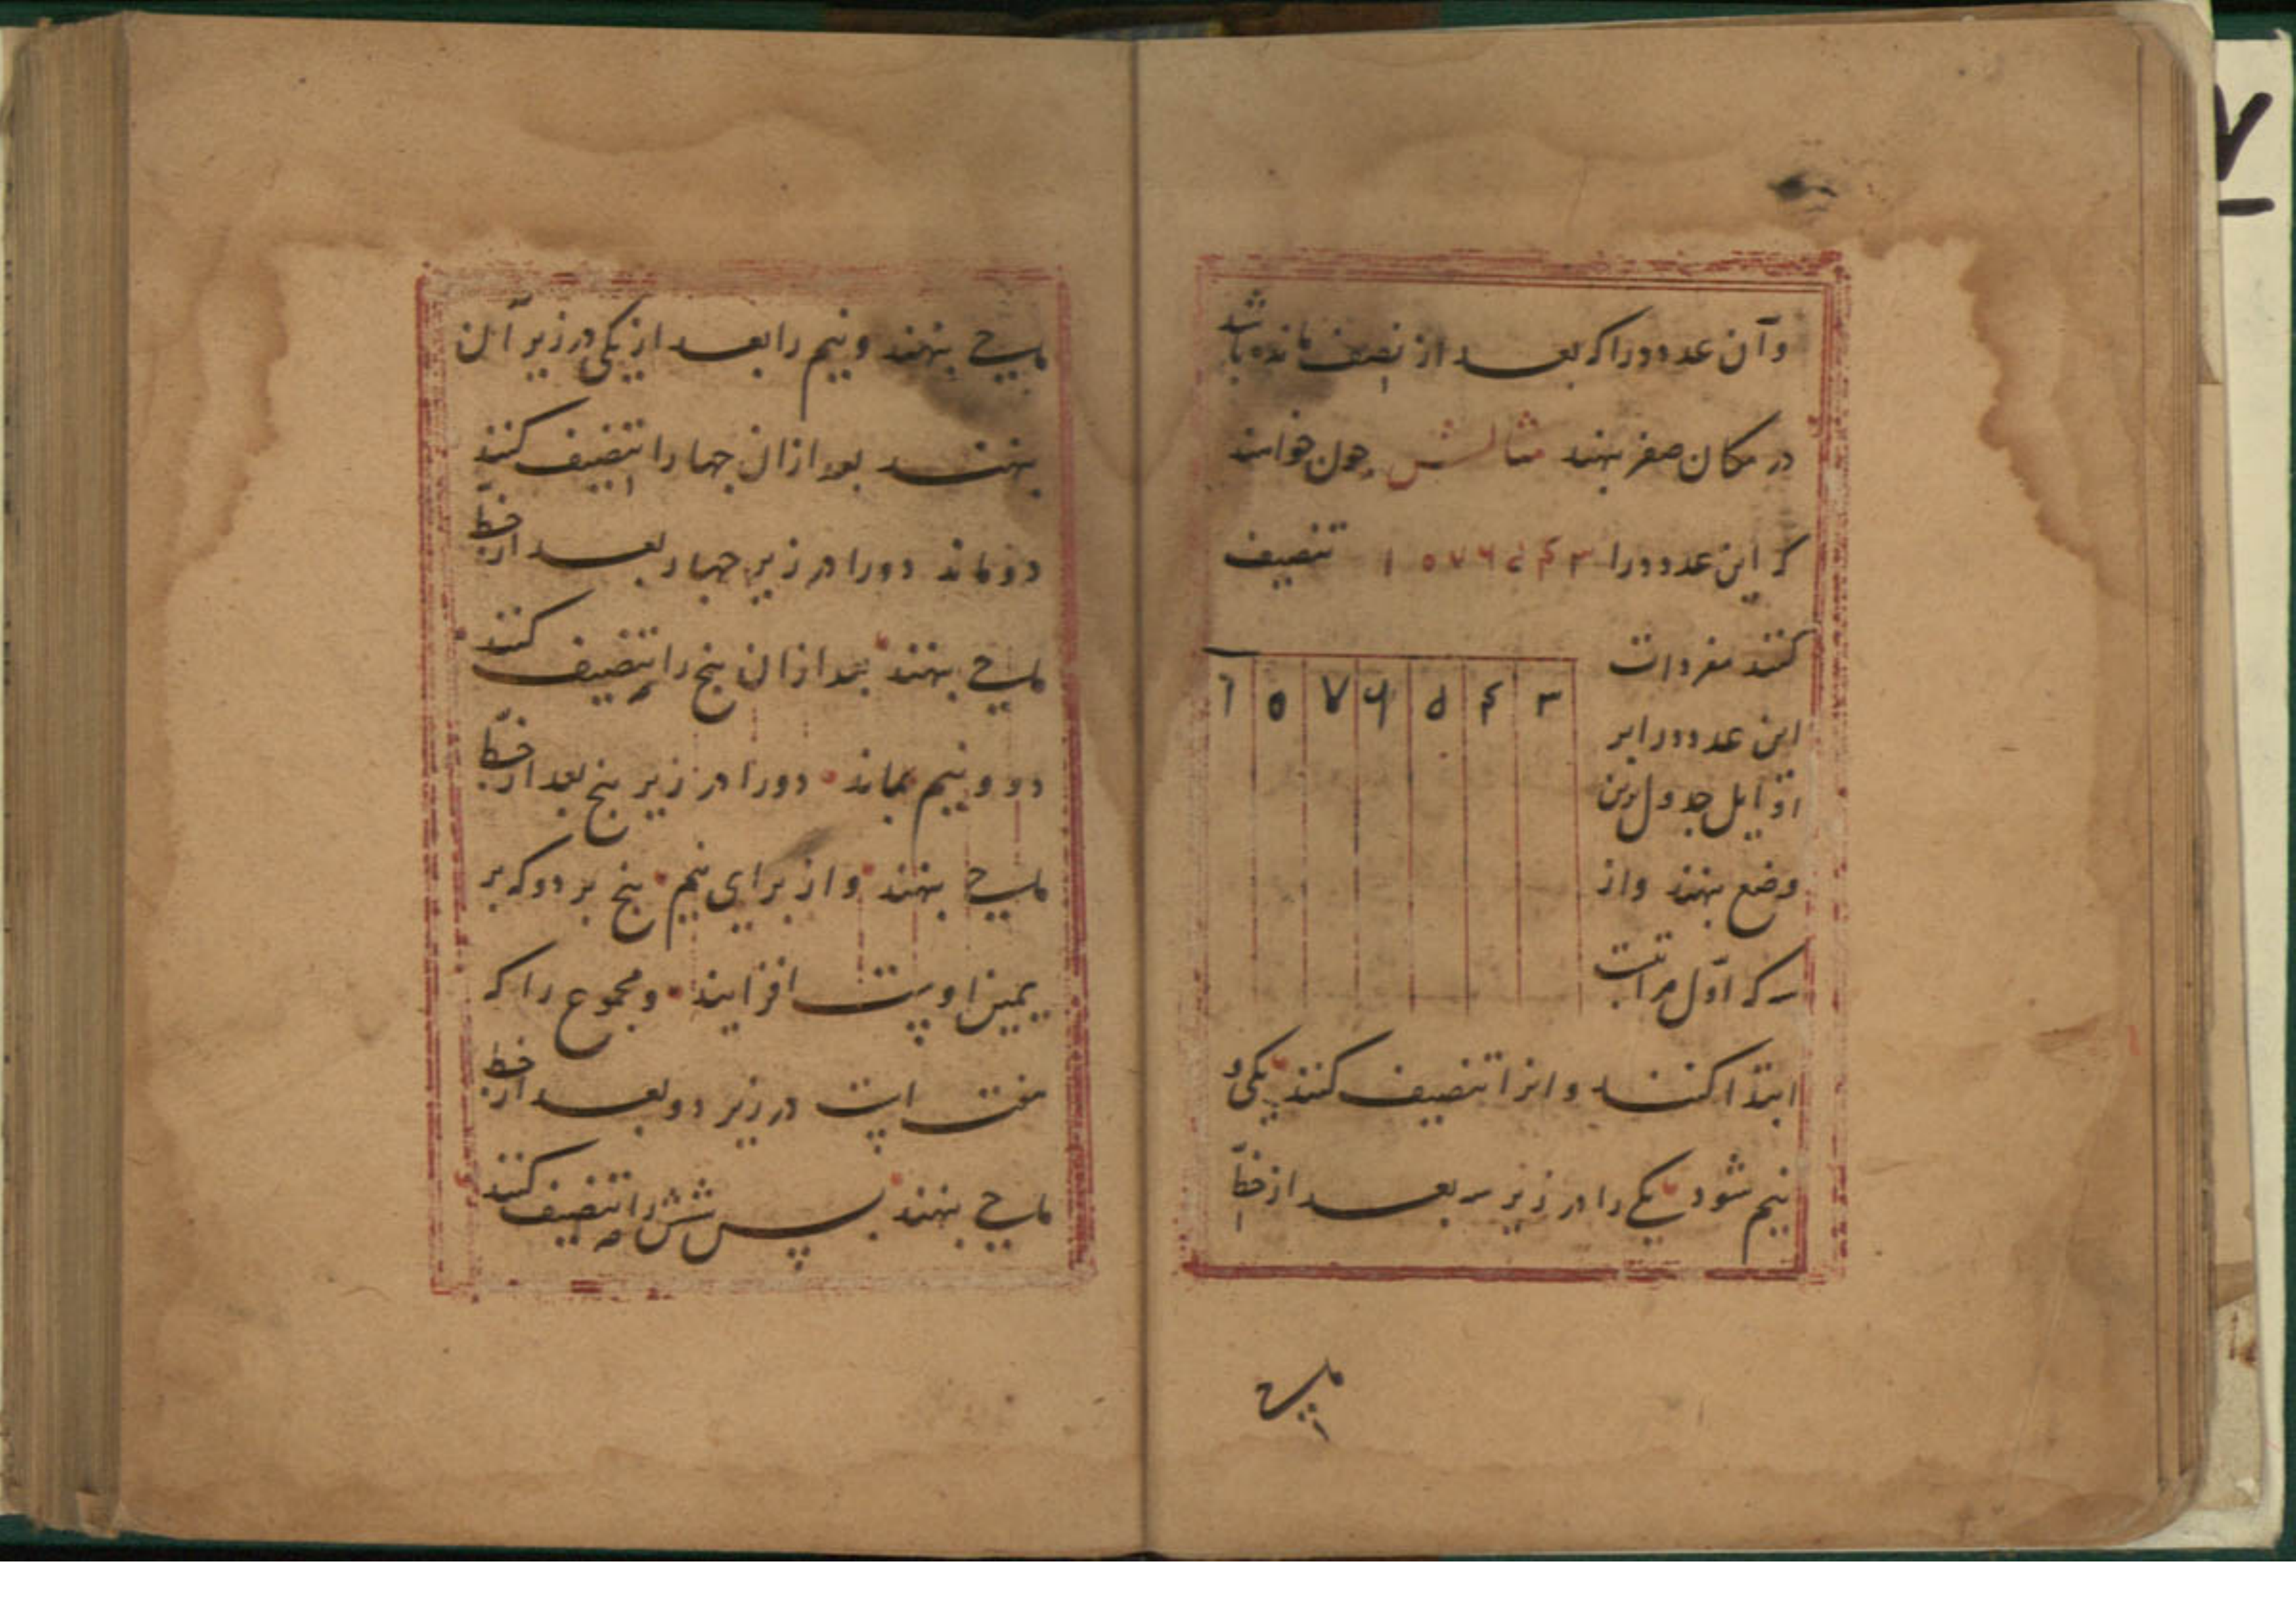 وآن عدد دورا که بعد از نصیف مانده باشد
در مکان صفر بنهند مثالش چون خواهند
که این عدد دورا ۱۵۷۶۵۴۳ تنصیف
کنند مفردات
۱ ۵ ۷ ۶ ۵ ۴ ۳
این عدد دورا بر
اوایل جدول برین
وضع بنهند واز
سه که اوّل مراتب
ابتدا کنند وانرا تنصیف کنند یکی و
نیم شود یکی را در زیر سه بعد از خطّ
ماحی
ماحی بنهند و نیم را بعد از یکی در زیر آن
بنهند بعد ازان چهار را تنصیف کنند
دو ماند دورا در زیر چهار بعد از خطّ
ماحی بنهند بعد ازان پنج را تنصیف کنند
دو و نیم بماند دورا در زیر پنج بعد از خطّ
ماحی بنهند واز برای نیم پنج بر دو که بر
یمین اوست افزایند و مجموع را که
هفت است در زیر دو بعد از خط
ماحی بنهند پس شش را تنصیف کنند